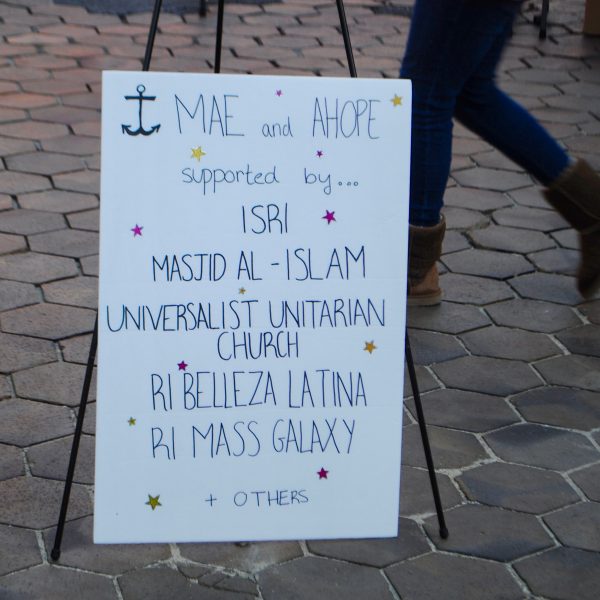 MAE and AHOPE
supported by...
ISRI
MASJID AL-ISLAM
UNIVERSALIST UNITARIAN
CHURCH
RI BELLEZA LATINA
RI MASS GALAXY
+ OTHERS